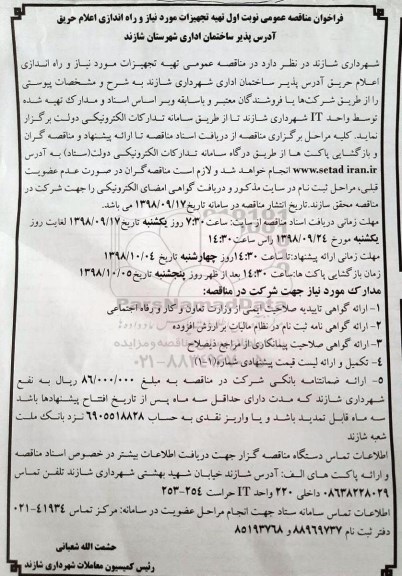 فراخوان مناقصه عمومی نوبت اول تهیه تجهیزات مورد نیاز و راه اندازی اعلام حریق
آدرس پذیر ساختمان اداری شهرستان شازند
شهرداری شازند در نظر دارد در مناقصه عمومی تهیه تجهیزات مورد نیاز و راه اندازی
اعلام حریق آدرس پذیر ساختمان اداری شهرداری شازند به شرح و مشخصات پیوستی
را از طریق شرکت‌ها یا فروشندگان معتبر و باسابقه وبر اساس اسناد و مدارک تهیه شده
توسط واحد IT شهرداری شازند تا از طریق سامانه تدارکات الکترونیکی دولت برگزار
نماید. کلیه مراحل برگزاری مناقصه از دریافت اسناد مناقصه تا ارائه پیشنهاد و مناقصه گران
و بازگشایی پاکت ها از طریق درگاه سامانه تدارکات الکترونیکی دولت(ستاد) به آدرس
www.setad iran.ir انجام خواهد شد و لازم است مناقصه‌گران در صورت عدم عضویت
قبلی، مراحل ثبت نام در سایت مذکور و دریافت گواهی امضای الکترونیکی را جهت شرکت در
مناقصه محقق سازند. تاریخ انتشار مناقصه در سامانه تاریخ ۱۳۹۸/۰۹/۱۷ می باشد.
مهلت زمانی دریافت اسناد مناقصه از سایت: ساعت ۷:۳۰ روز یکشنبه تاریخ ۱۳۹۸/۰۹/۱۷ لغایت روز
یکشنبه مورخ ۱۳۹۸/۰۹/۲۴ راس ساعت ۱۴:۳۰
مهلت زمانی ارائه پیشنهاد: تا ساعت ۱۴:۳۰ روز چهارشنبه تاریخ ۱۳۹۸/۱۰/۰۴
زمان بازگشایی پاکت ها: ساعت ۱۴:۳۰ بعد از ظهر روز پنجشنبه تاریخ ۱۳۹۸/۱۰/۰۵
مدارک مورد نیاز جهت شرکت در مناقصه:
۱- ارائه گواهی تاییدیه صلاحیت ایمنی از وزارت تعاون و کار و رفاه اجتماعی
۲- ارائه گواهی نامه ثبت نام در نظام مالیات بر ارزش افزوده
۳- ارائه گواهی صلاحیت پیمانکاری از مراجع ذیصلاح
۴- تکمیل و ارائه لیست قیمت پیشنهادی شماره (۱-۱)
۵- ارائه ضمانتنامه بانکی شرکت در مناقصه به مبلغ ۸۶/۰۰۰/۰۰۰ ریال به نفع
شهرداری شازند که مدت دارای حداقل سه ماه پس از تاریخ افتتاح پیشنهادها باشد
سه ماه قابل تمدید باشد و یا واریز نقدی به حساب ۶۹۰۵۵۱۸۸۲۸ نزد بانک ملت
شعبه شازند
اطلاعات تماس دستگاه مناقصه گزار جهت دریافت اطلاعات بیشتر در خصوص اسناد مناقصه
و ارائه پاکت های الف: آدرس شازند خیابان شهید بهشتی شهرداری شازند تلفن تماس
۰۸۶۳۸۲۲۸۰۲۹ داخلی ۲۲۰ واحد IT حراست ۲۵۴-۲۵۳
اطلاعات تماس سامانه ستاد جهت انجام مراحل عضویت در سامانه: مرکز تماس ۴۱۹۳۴-۰۲۱
دفتر ثبت نام ۸۸۹۶۹۷۳۷ و ۸۵۱۹۳۷۶۸
حشمت الله شعبانی
رئیس کمیسیون معاملات شهرداری شازند